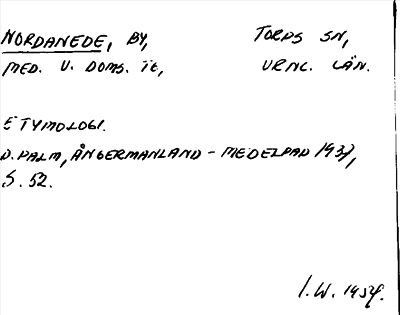 NORDANEDE, BY, TORPS SN,
MED. V. DOMS. TG, VRNL. LÄN.
ETYMOLOGI.
D. PALM, ÅNGERMANLAND - MEDELPAD 1937,
S. 52.
I. W. 1954.